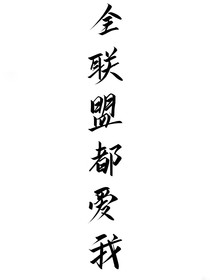 全联盟都爱我